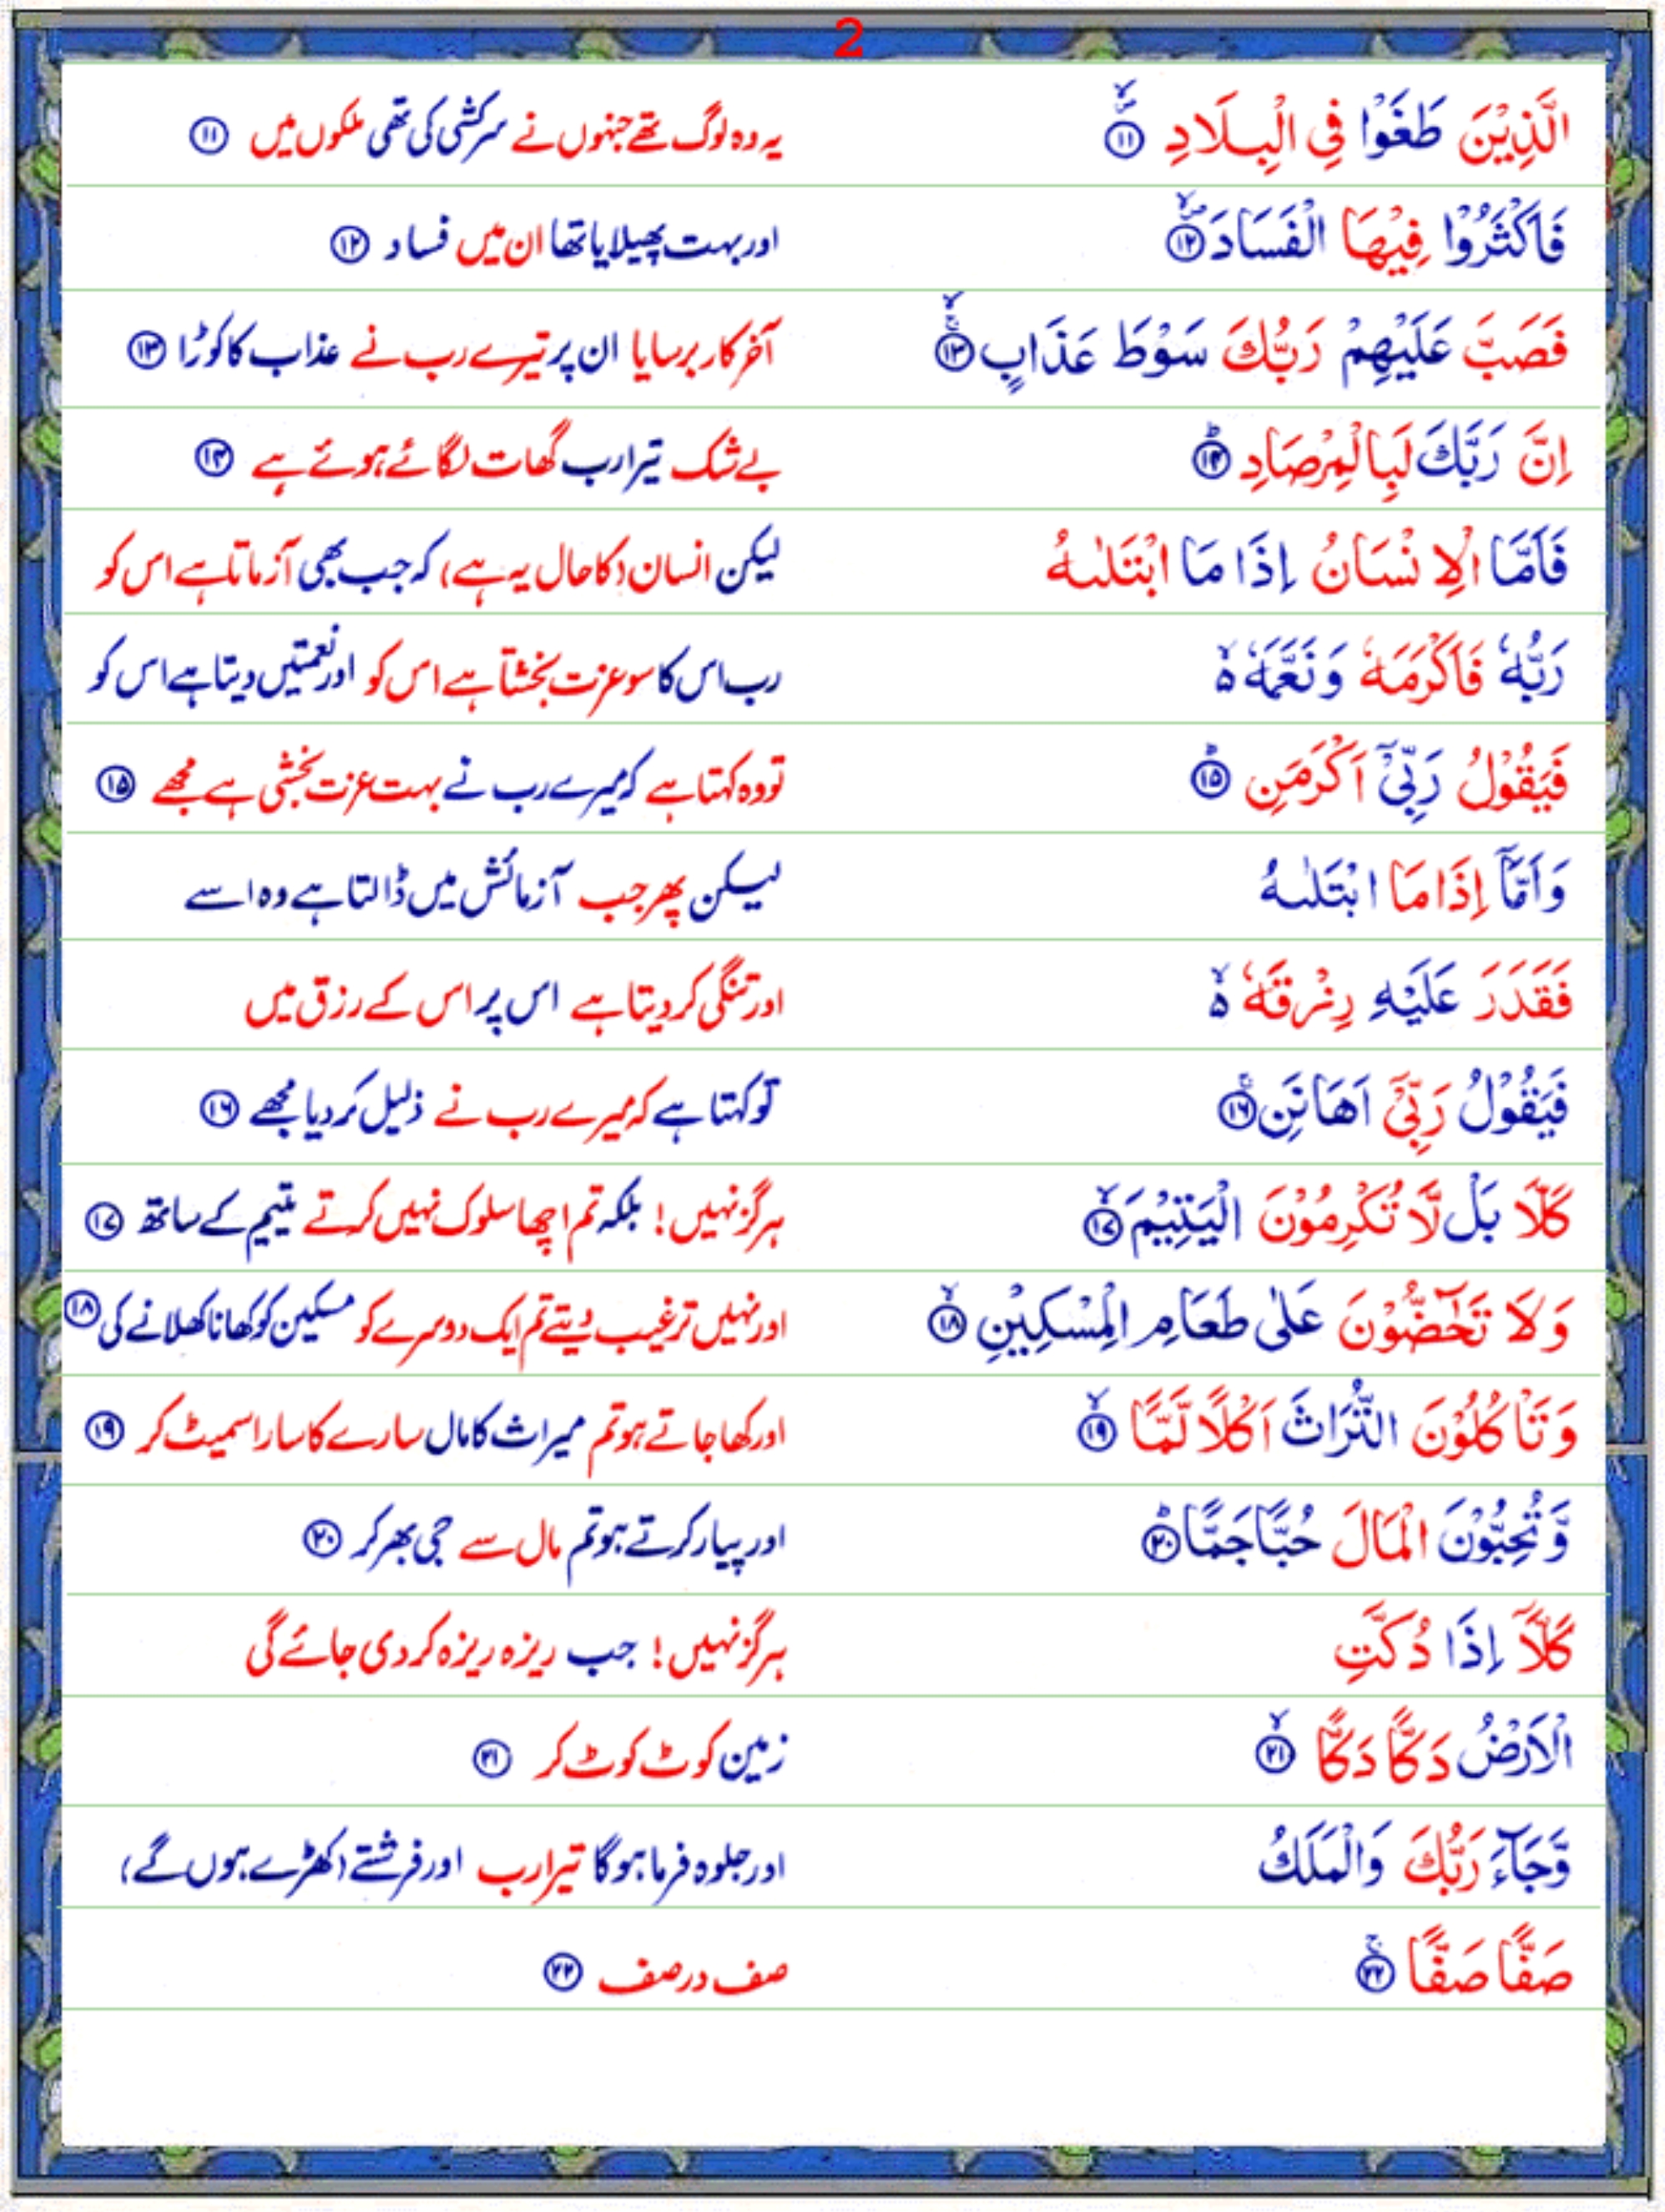 2
الَّذِيْنَ طَغَوْا فِي الْبِلَادِ ۪ۙ ⑪ یہ وہ لوگ تھے جنہوں نے سرکشی کی تھی ملکوں میں ⑪
فَاَكْثَرُوْا فِيْهَا الْفَسَادَ ۪ۙ ⑫ اور بہت پھیلایا تھا ان میں فساد ⑫
فَصَبَّ عَلَيْهِمْ رَبُّكَ سَوْطَ عَذَابٍ ۚۙ ⑬ آخرکار برسایا ان پر تیرے رب نے عذاب کا کوڑا ⑬
اِنَّ رَبَّكَ لَبِالْمِرْصَادِ ؕ ⑭ بے شک تیرا رب گھات لگائے ہوئے ہے ⑭
فَاَمَّا الْاِنْسَانُ اِذَا مَا ابْتَلٰىهُ لیکن انسان (کا حال یہ ہے) کہ جب بھی آزماتا ہے اس کو
رَبُّهٗ فَاَكْرَمَهٗ وَنَعَّمَهٗ ۙ۬ رب اس کا سو عزت بخشتا ہے اس کو اور نعمتیں دیتا ہے اس کو
فَيَقُوْلُ رَبِّيْٓ اَكْرَمَنِ ؕ ⑮ تو وہ کہتا ہے کہ میرے رب نے بہت عزت بخشی ہے مجھے ⑮
وَاَمَّآ اِذَا مَا ابْتَلٰىهُ لیکن پھر جب آزمائش میں ڈالتا ہے وہ اسے
فَقَدَرَ عَلَيْهِ رِزْقَهٗ ۙ۬ اور تنگی کر دیتا ہے اس پر اس کے رزق میں
فَيَقُوْلُ رَبِّيْٓ اَهَانَنِ ۚ ⑯ تو کہتا ہے کہ میرے رب نے ذلیل کر دیا مجھے ⑯
كَلَّا بَلْ لَّا تُكْرِمُوْنَ الْيَتِيْمَ ۙ ⑰ ہرگز نہیں! بلکہ تم اچھا سلوک نہیں کرتے یتیم کے ساتھ ⑰
وَلَا تَحٰٓضُّوْنَ عَلٰى طَعَامِ الْمِسْكِيْنِ ۙ ⑱ اور نہیں ترغیب دیتے تم ایک دوسرے کو مسکین کو کھانا کھلانے کی ⑱
وَتَاْكُلُوْنَ التُّرَاثَ اَكْلًا لَّمًّا ۙ ⑲ اور کھا جاتے ہو تم میراث کا مال سارے کا سارا سمیٹ کر ⑲
وَّتُحِبُّوْنَ الْمَالَ حُبًّا جَمًّا ؕ ⑳ اور پیار کرتے ہو تم مال سے جی بھر کر ⑳
كَلَّآ اِذَا دُكَّتِ ہرگز نہیں! جب ریزہ ریزہ کر دی جائے گی
الْاَرْضُ دَكًّا دَكًّا ۙ ㉑ زمین کوٹ کوٹ کر ㉑
وَّجَآءَ رَبُّكَ وَالْمَلَكُ اور جلوہ فرما ہوگا تیرا رب اور فرشتے (کھڑے ہوں گے)
صَفًّا صَفًّا ۚ ㉒ صف در صف ㉒